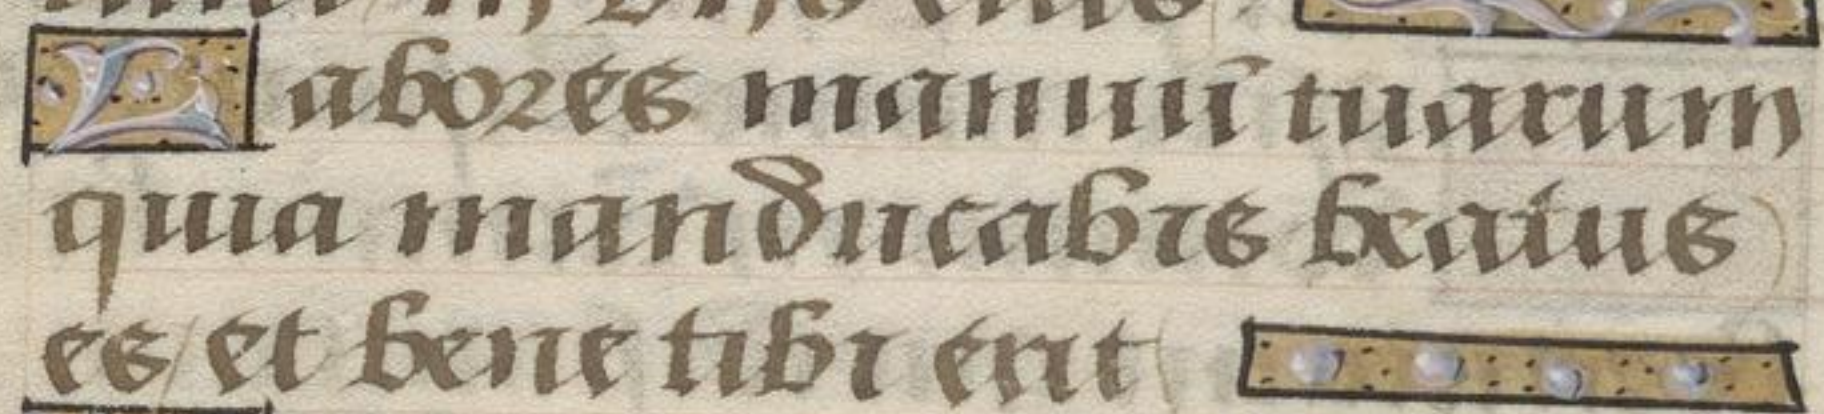 Labores manuū tuarum
quia manducabis beatus
es / et bene tibi erit